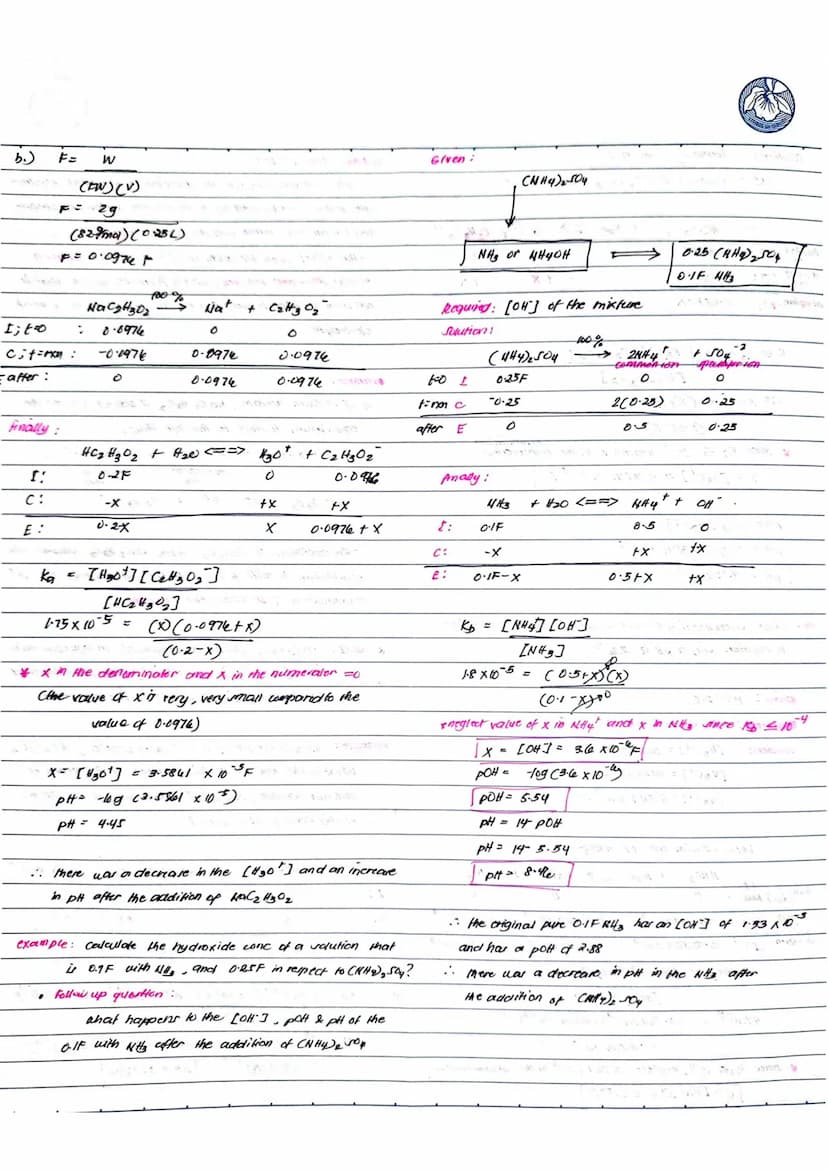 b.) F = W
(FW)(V)
F = 2g
(82g/mol)(0.25L)
F = 0.0976 F
NaC2H3O2 100% → Na+ + C2H3O2-
I; t=0 : 0.0976 0 0
C; t=mon : -0.0976 0.0976 0.0976
after : 0 0.0976 0.0976
Finally :
HC2H3O2 + H2O <==> H3O+ + C2H3O2-
I: 0.2F 0 0.0976
C: -x +x +x
E: 0.2-x x 0.0976 + x
Ka = [H3O+][C2H3O2-]
[HC2H3O2]
1.75 x 10-5 = (x)(0.0976+x)
(0.2-x)
* x in the denominator and x in the numerator = 0
(the value of x is very, very small compared to the
value of 0.0976)
x = [H3O+] = 3.5861 x 10-5 F
pH = -log (3.5861 x 10-5)
pH = 4.45
∴ There was a decrease in the [H3O+] and an increase
in pH after the addition of NaC2H3O2
example: Calculate the hydroxide conc of a solution that
is 0.1F with NH3, and 0.25F in respect to (NH4)2SO4?
• Follow up question :
what happens to the [OH-], pOH & pH of the
0.1F with NH3 after the addition of (NH4)2SO4
Given :
(NH4)2SO4
NH3 or NH4OH ⟹ 0.25 (NH4)2SO4
0.1F NH3
Required: [OH-] of the mixture
Solution:
(NH4)2SO4 100% → 2NH4+ + SO4-2
common ion spectator ion
t=0 I 0.25F 0 0
t=mon C -0.25 2(0.25) 0.25
after E 0 0.5 0.25
Finally :
NH3 + H2O <==> NH4+ + OH-
I: 0.1F 0.5 0
C: -x +x +x
E: 0.1F-x 0.5+x +x
Kb = [NH4+][OH-]
[NH3]
1.8 x 10-5 = (0.5+x)0(x)
(0.1-x)0
*neglect value of x in NH4+ and x in NH3 since Kb ≤ 10-4
x = [OH-] = 3.6 x 10-6 F
pOH = -log (3.6 x 10-6)
pOH = 5.54
pH = 14-pOH
pH = 14-5.54
pH = 8.46
∴ The original pure 0.1F NH3 has an [OH-] of 1.33 x 10-3
and has a pOH of 2.88
∴ There was a decrease in pH in the NH3 after
the addition of (NH4)2SO4